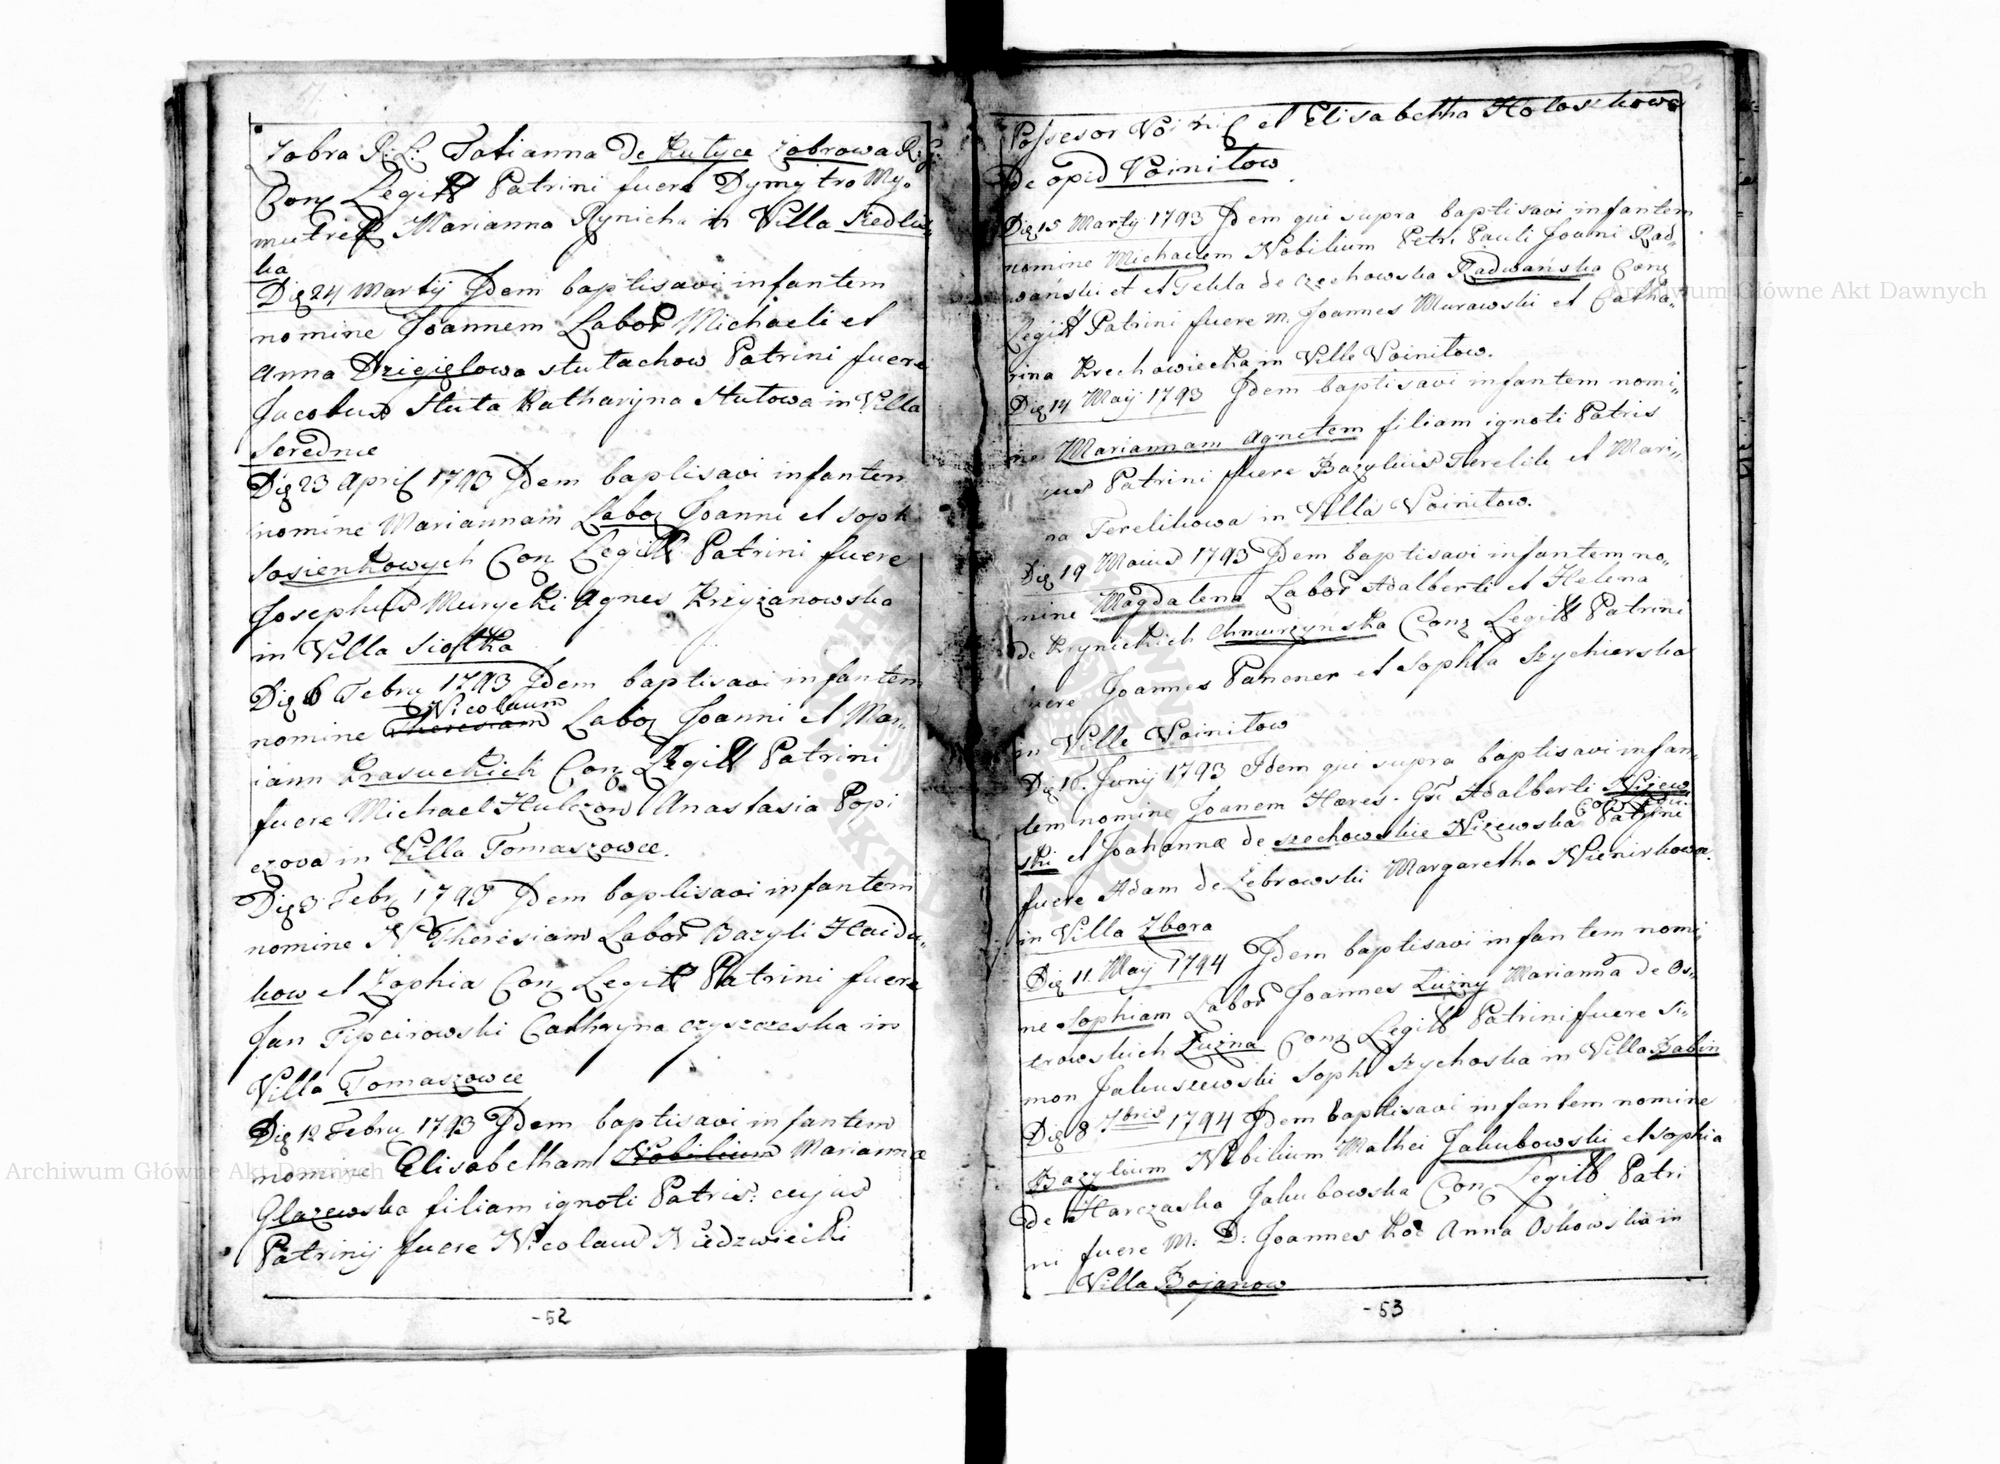 Zobra R: L: Tatianna de Rutyce Zobrowa R: G:
Conz Legitt Patrini fuere Dymytro My-
Marianna Rynicha in Villa Siedlis-
ka
Die 24 Martij Idem baptisavi infantem
nomine Joannem Labor Michaeli et
Anna Dzięgielowa stutachow Patrini fuere
Jacobus Stuta Katharyna Stutowa in Villa
Serednie
Die 23 April 1793 Idem baptisavi infantem
nomine Mariannam Labor Joanni et soph
sosienkowych Conz Legitt Patrini fuere
Josephus Murycki Agnes Krzyzanowska
in Villa Siolka
Die 6 Febru 1793 Idem baptisavi infantem
Nicolaum
nomine Theresiam Labor Joanni et Mar-
iann Krasuckich Conz Legitt Patrini
fuere Michael Hulczow Anastasia Popi
czova in Villa Tomaszowce.
Die 3 Febr 1793 Idem baptisavi infantem
nomine N Theresiam Labor Bazyli Haidu-
kow et Zophia Conz Legitt Patrini fuere
Jan Cathryna czyszczeska in
Villa Tomaszowce
Die 12 Febru 1793 Idem baptisavi infantem
nomine Elisabetham Nobilium Mariannæ
Glazewska filiam ignoti Patris: cujus
Patrinij fuere Nicolaus Niedzwiecki
-52
Possesor et Elisabetha Holoskowa
De opid Voinilow
Die 15 Martij 1793 Idem qui supra baptisavi infantem
nomine Michaelem Nobilium Petri Pauli Joanni Rad-
wański et et Tekla de czechowska Radwańska Conz
Legitt Patrini fuere m. Joannes Murawski et Catha-
rina Krechowiecka in Ville Voinilow.
Die 14 Maij 1793 Idem baptisavi infantem nomi-
ne Mariannam Agnetem filiam ignoti Patris
jus Patrini fuere Bazylius Terelik et Mari-
na Terelikowa in Villa Voinilow.
Die 19 Maius 1793 Idem baptisavi infantem no-
mine Magdalena Labor Adalberti et Helena
de Krynickich Chmurzynska Conz Legitt Patrini
fuere Joannes Panener et Sophia Szychierska
in Ville Voinilow
Die 16. Junij 1793 Idem qui supra baptisavi infan-
tem nomine Joanem Hæres. Gsi Adalberti Niżew
ski et Joahannæ de szechowskie Niżewska Patrini
fuere Adam de Zebrowski Margaretha Nienirkowa.
in Villa Zbora
Die 11 Maij 1794 Idem baptisavi infantem nomi
ne Sophiam Labor Joannes Luzny Marianna de Os-
trowskich Luzna Conz Legitt Patrini fuere Si-
mon Jakuszewski Soph Szychoska in Villa Babin
Die 8 7bris 1794 Idem baptisavi infantem nomine
Bazylium Nobilium Mathei Jakubowski et sophia
de Harczaska Jakubowska Conz Legitt Patri
ni fuere M: D: Joannes Koc Anna Oskowska in
Villa Bojanow
-53
Archiwum Główne Akt Dawnych
Archiwum Główne Akt Dawnych